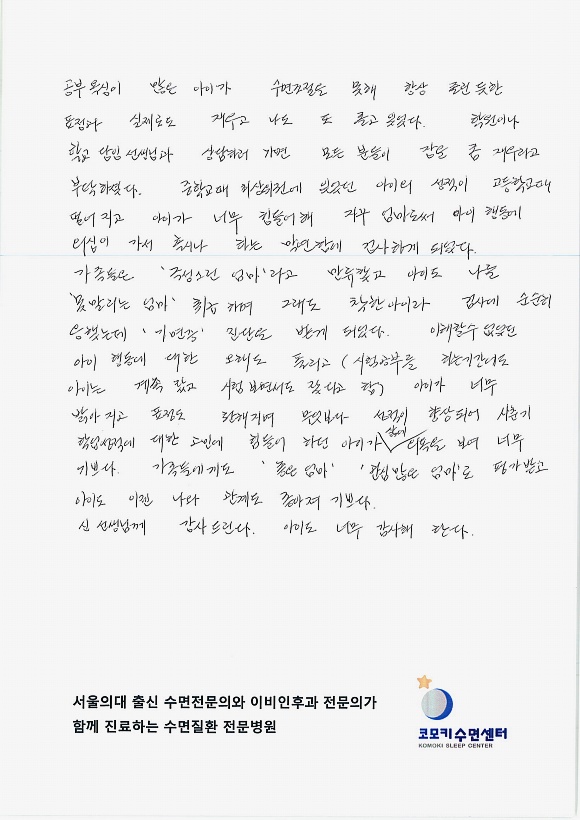 공부 욕심이 많은 아이가 수면조절을 못해 항상 졸린 듯한
표정과 실제로도 재우고 나도 또 졸고 있었다. 학원이나
학교 담임 선생님과 상담하러 가면 모든 분들이 잠을 좀 재우라고
부탁하셨다. 중학교때 최상위권에 있었던 아이의 성적이 고등학교때
떨어지고 아이가 너무 힘들어해 자꾸 엄마로써 아이 행동에
의심이 가서 혹시나 하는 막연함에 검사하게 되었다.
가족들은 '극성스런 엄마'라고 만류했고 아이도 나를
'못말리는 엄마' 취급 하며 그래도 착한아이라 검사에 순순히
응했는데 '기면증' 진단을 받게 되었다. 이해할수 없었던
아이 행동에 대한 오해도 풀리고 (시험공부를 하는기간에도
아이는 계속 잤고 시험 보면서도 잤다고 함) 아이가 너무
밝아지고 표정도 환해지며 무엇보다 성적이 향상되어 사춘기
학업성적에 대한 고민에 힘들어 하던 아이가 삶에 의욕을 보여 너무
기쁘다. 가족들에게도 '좋은 엄마' '관심 많은 엄마'로 평가받고
아이도 이젠 나와 관계도 좋아져 기쁘다.
신 선생님께 감사드린다. 아이도 너무 감사해 한다.
서울의대 출신 수면전문의와 이비인후과 전문의가
함께 진료하는 수면질환 전문병원
코모키수면센터
KOMOKI SLEEP CENTER